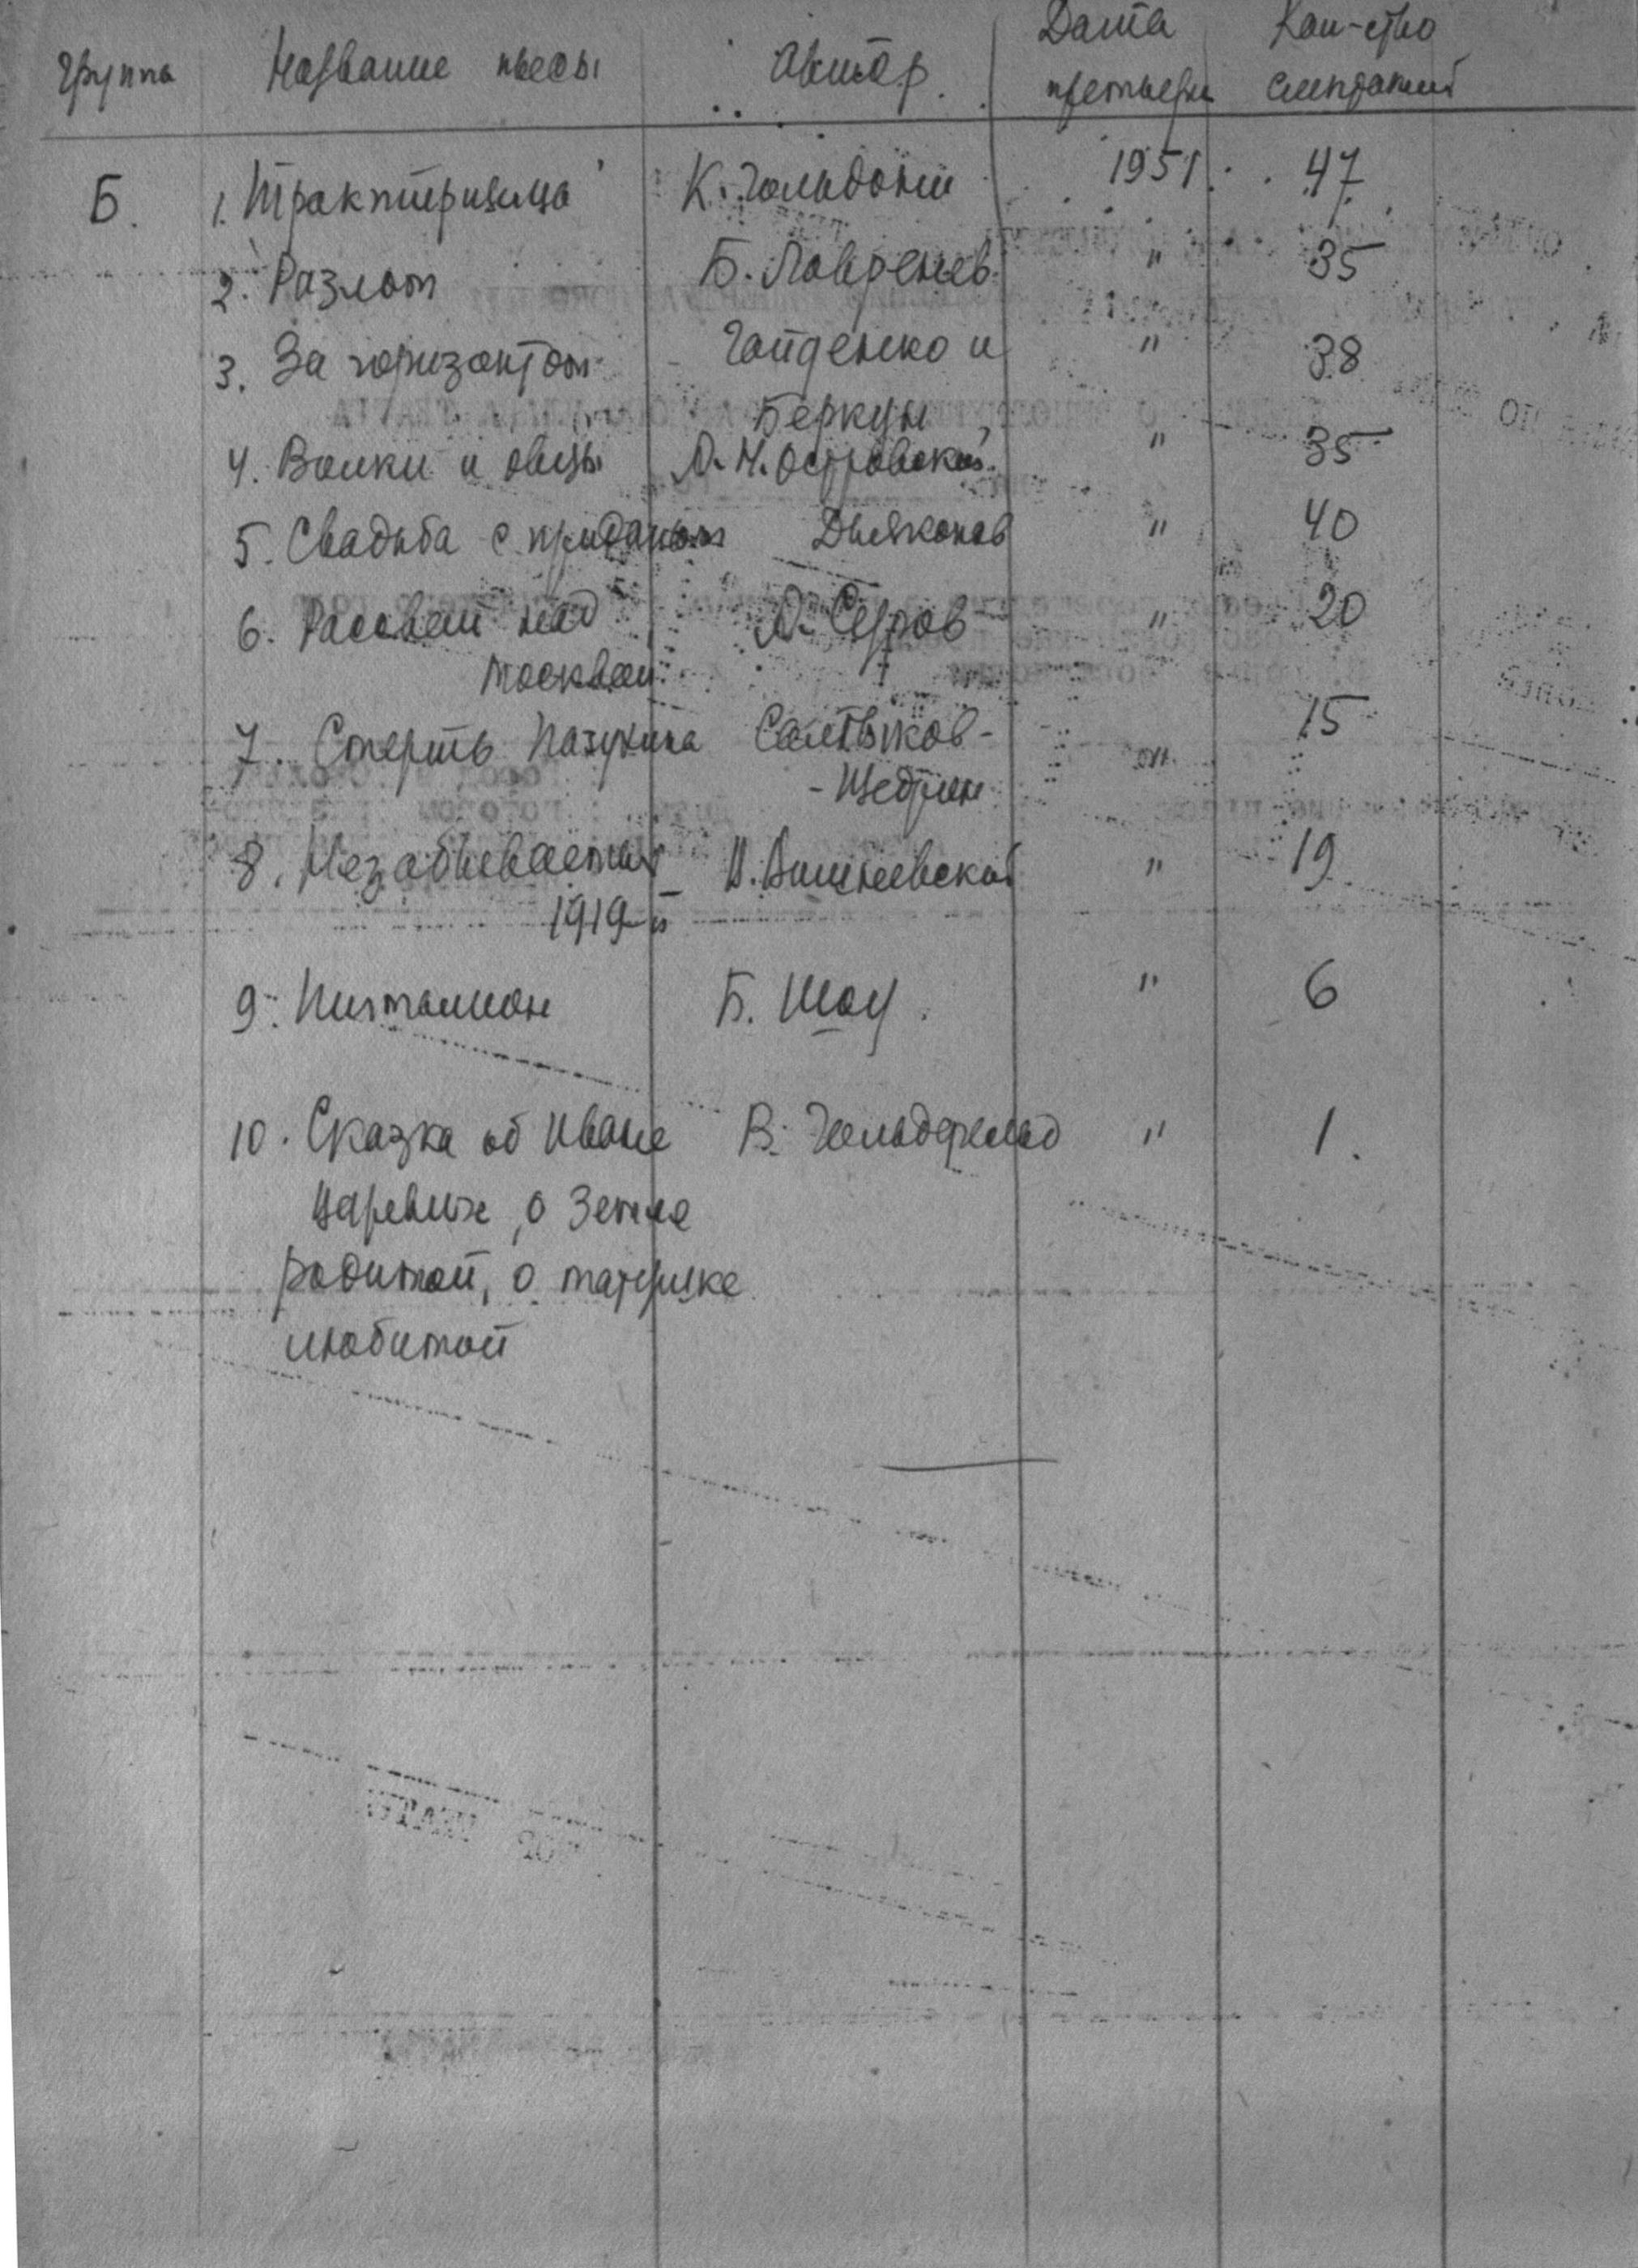 Группа Название пьесы Автор Дата премьеры Кол-ство спектаклей
Б. 1. Трактирщица К. Гольдони 1951 47
2. Разлом Б. Лавренев " 35
3. За горизонтом Гайденко и " 38
Беркун
4. Волки и овцы А. Н. Островский " 35
5. Свадьба с приданым Дьяконов " 40
6. Рассвет над А. Суров " 20
Москвой
7. Смерть Пазухина Салтыков- " 15
-Щедрин
8. Незабываемый В. Вишневский " 19
1919-й
9. Пигмалион Б. Шоу. " 6
10. Сказка об Иване В. Гольдфельд " 1.
царевиче, о Земле
родимой, о матушке
любимой